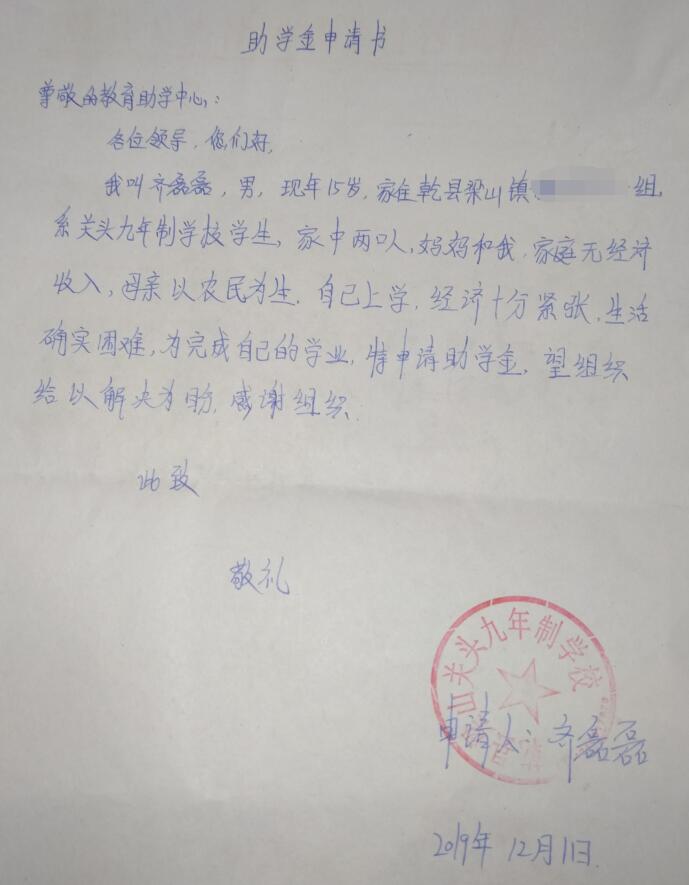 助学金申请书
尊敬的教育助学中心:
各位领导,您们好,
我叫齐磊磊,男,现年15岁,家住乾县梁山镇 组,
系关头九年制学校学生,家中两口人,妈妈和我,家庭无经济
收入,母亲以农民为生,自己上学,经济十分紧张,生活
确实困难,为完成自己的学业,特申请助学金,望组织
给以解决为盼,感谢组织.
此致
敬礼
山关头九年制学校
申请人:齐磊磊
2019年12月1日.